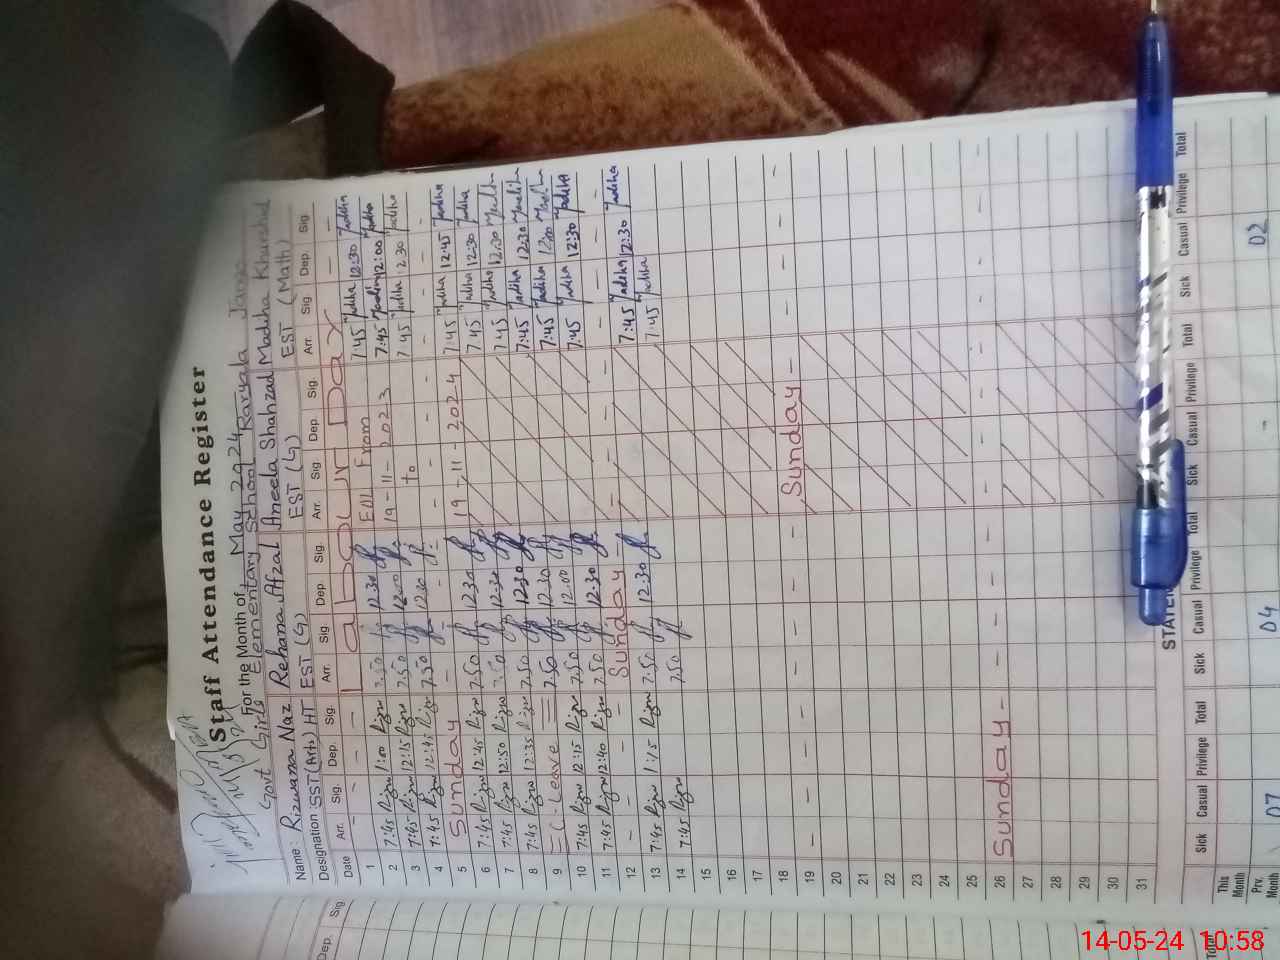 Staff Attendance Register
For the Month of May 2024
Govt Girls Elementary School Raryala
Name: Rizwana Naz Rehana Afzal Aneela Shahzad Madiha Khurshid
Designation: SST (Arts) HT EST (G) EST (G) EST (Math)
Date Arr. Sig. Dep. Sig. Arr. Sig Dep. Sig. Arr. Sig Dep. Sig. Arr. Sig Dep. Sig.
1 - - - - Labour Day - -
2 7:45 Rizw 1:00 Rizw 7:50 12:30 Ell From 7:45 Madiha 12:30 Madiha
3 7:45 Rizw 12:15 Rizw 7:50 12:00 19-11-2023 7:45 Madiha 12:00 Madiha
4 7:45 Rizw 12:45 Rizw 7:50 12:30 to 7:45 Madiha 12:30 Madiha
5 Sunday - - - - - - - -
6 7:45 Rizw 12:45 Rizw 7:50 12:30 19-11-2024 7:45 Madiha 12:45 Madiha
7 7:45 Rizw 12:50 Rizw 7:50 12:30 7:45 Madiha 12:30 Madiha
8 7:45 Rizw 12:35 Rizw 7:50 12:30 7:45 Madiha 12:30 Madiha
9 = C. Leave = 7:50 12:30 7:45 Madiha 12:30 Madiha
10 7:45 Rizw 12:15 Rizw 7:50 12:00 7:45 Madiha 12:00 Madiha
11 7:45 Rizw 12:40 Rizw 7:50 12:30 7:45 Madiha 12:30 Madiha
12 - - - - Sunday - - - - - - - -
13 7:45 Rizw 1:15 Rizw 7:50 12:30 7:45 Madiha 12:30 Madiha
14 7:45 Rizw 7:50 7:45 Madiha
15
16
17
18
19 - - - - - - Sunday - - -
20
21
22
23
24
25
26 Sunday - - - - - - -
27
28
29
30
31
Sick Casual Privilege Total Sick Casual Privilege Total Sick Casual Privilege Total Sick Casual Privilege Total
This Month
Prv. Month 07 04 02
Dep. Sig
Total
14-05-24 10:58